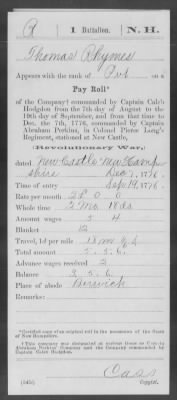 R | 1 Battalion. | N. H.
Thomas Rhymes
Appears with the rank of Pvt on a
Pay Roll*
of the Company† commanded by Captain Cale'b
Hodgdon from the 7th day of August to the
10th day of September, and from that time to
Dec. the 7th, 1776, commanded by Captain
Abraham Perkins, in Colonel Pierce Long's
Regiment, stationed at New Castle,
(Revolutionary War,)
dated New Castle New Hamp
shire Dec 7, 1776.
Time of entry Sep 19, 1776.
Rate per month 2£ 0 0
Whole time 2 Mo. 18 ds
Amount wages 5 4
Blanket 12
Travel, 1d per mile
Total amount 5. 5. 6.
Advance wages received 2
Balance 3. 5. 6.
Place of abode Berwick
Remarks:
*Certified copy of an original roll in the possession of the State
of New Hampshire.
†This company was designated at various times as Captain
Abraham Perkins' Company and the Company commanded by
Captain Caleb Hodgdon.
Cass
(545) Copyist.